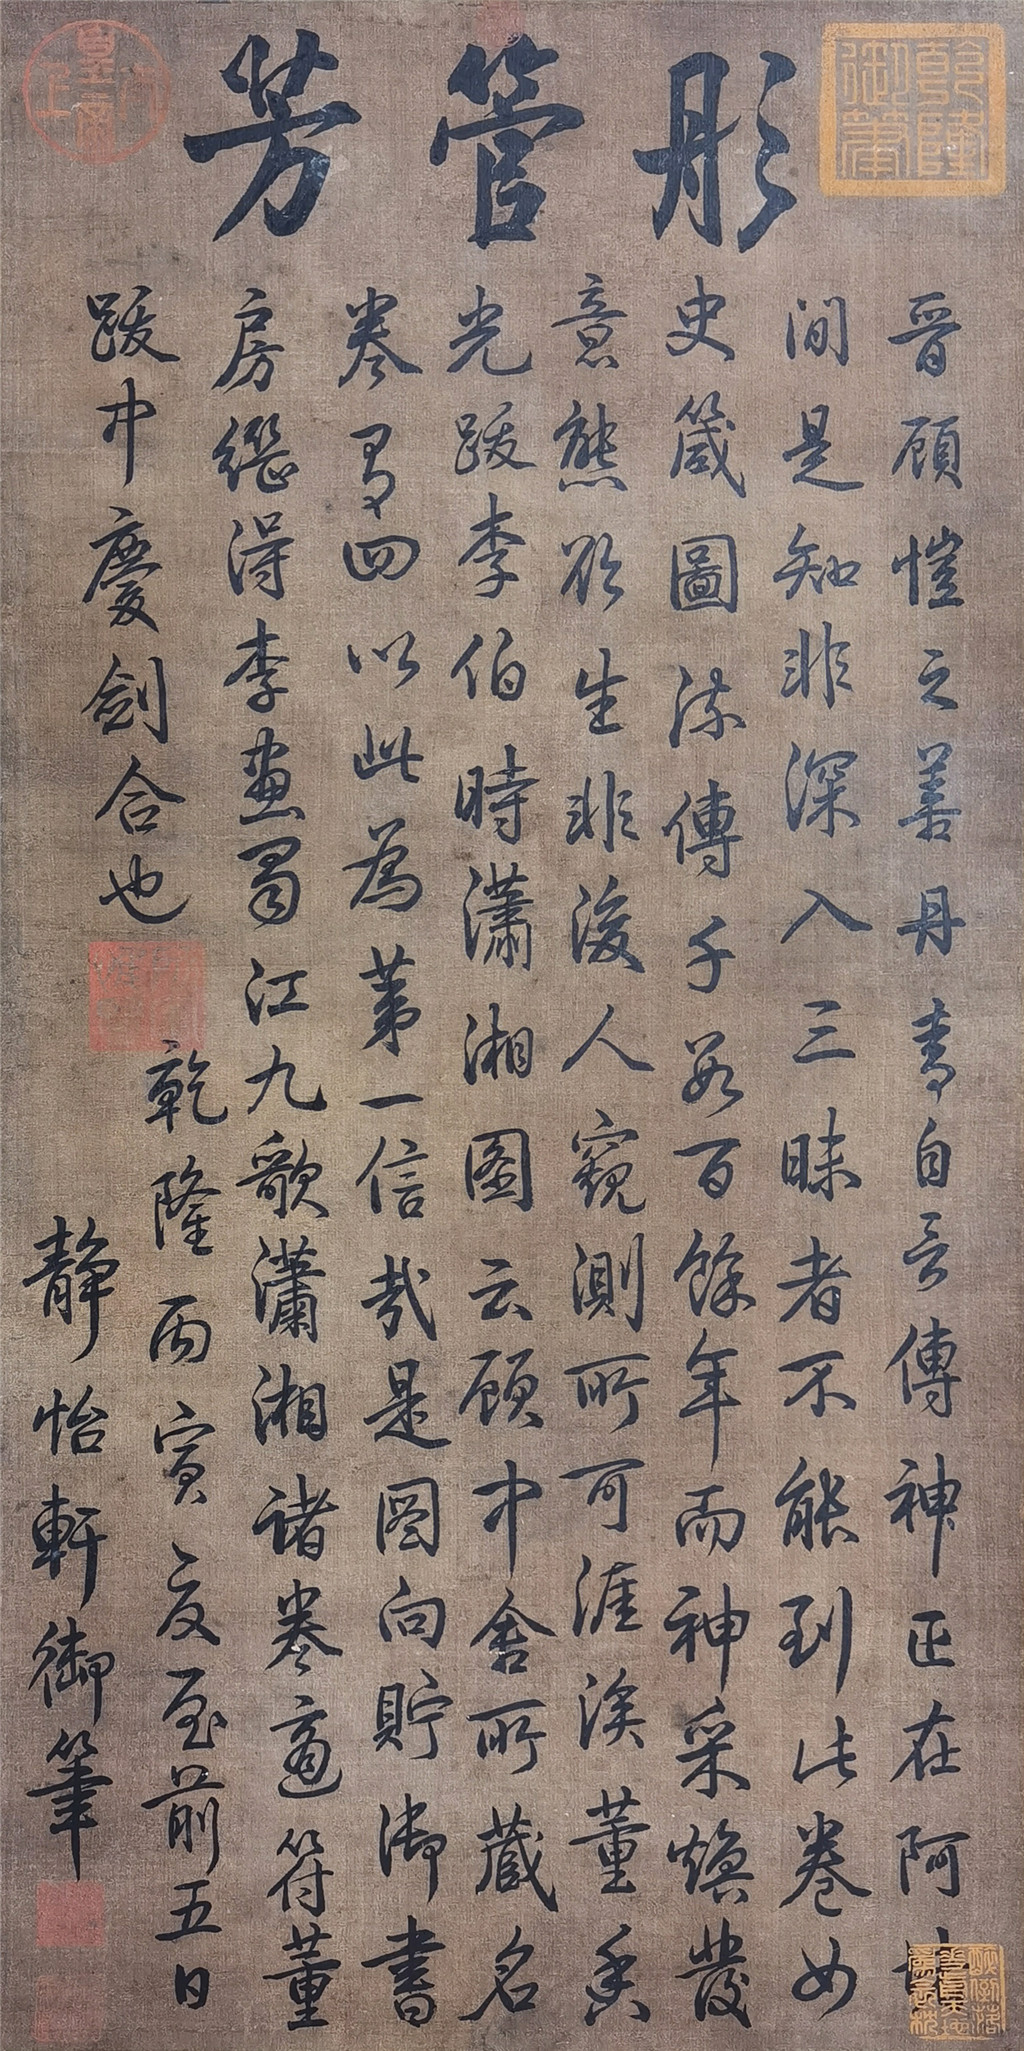 彤管芳
晉顧愷之善丹青自言傳神正在阿
間是知非深入三昧者不能到此卷女
史箴圖流傳千數百餘年而神采煥發
意態欲生非後人窺測所可涯涘董香
光跋李伯時瀟湘圖云顧中舍所藏名
卷有四以此為第一信哉是圖向貯御書
房繼得李畫蜀江九歌瀟湘諸卷適符董
跋中慶劍合也
乾隆丙寅夏至前五日
靜怡軒御筆
乾隆御筆